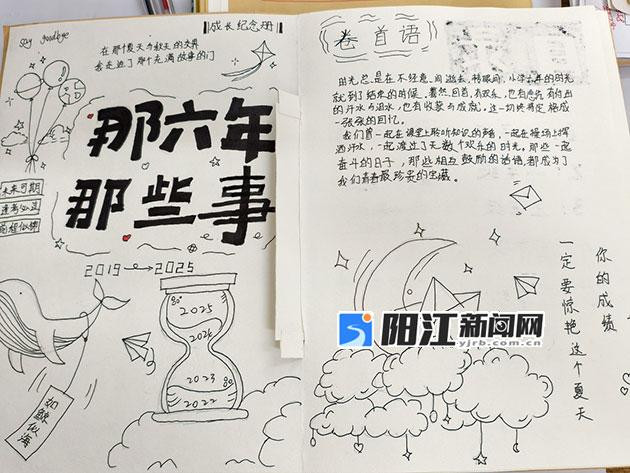 say goodbye
成长纪念册
在那个夏天与秋天的交界
我走进了那个充满故事的门
那六年
那些事
未来可期
逐梦似过
前程似锦
2019→2025
80
2025
2024
2023
80
2022
如鲸似海
卷首语
时光总是在不经意间逝去，转眼间，小学六年的时光
就到了结束的时候。蓦然回首，有欢乐，也有悲伤，有付出
的汗水与泪水，也有收获与成就。这一切将定格成
一张张的回忆。
我们曾一起在课堂上聆听知识的声音，一起在操场上挥
洒汗水，一起渡过了无数个欢乐的时光。那些一起
奋斗的日子，那些相互鼓励的话语都成为了
我们青春最珍贵的宝藏。
你的成绩
一定要惊艳这个夏天
阳江新闻网
yjrb.com.cn